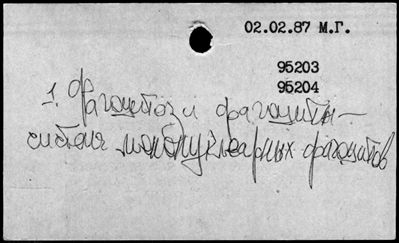 02.02.87 М.Г.
95203
95204
1. Фагоцитоз и фагоциты –
система мононуклеарных фагоцитов